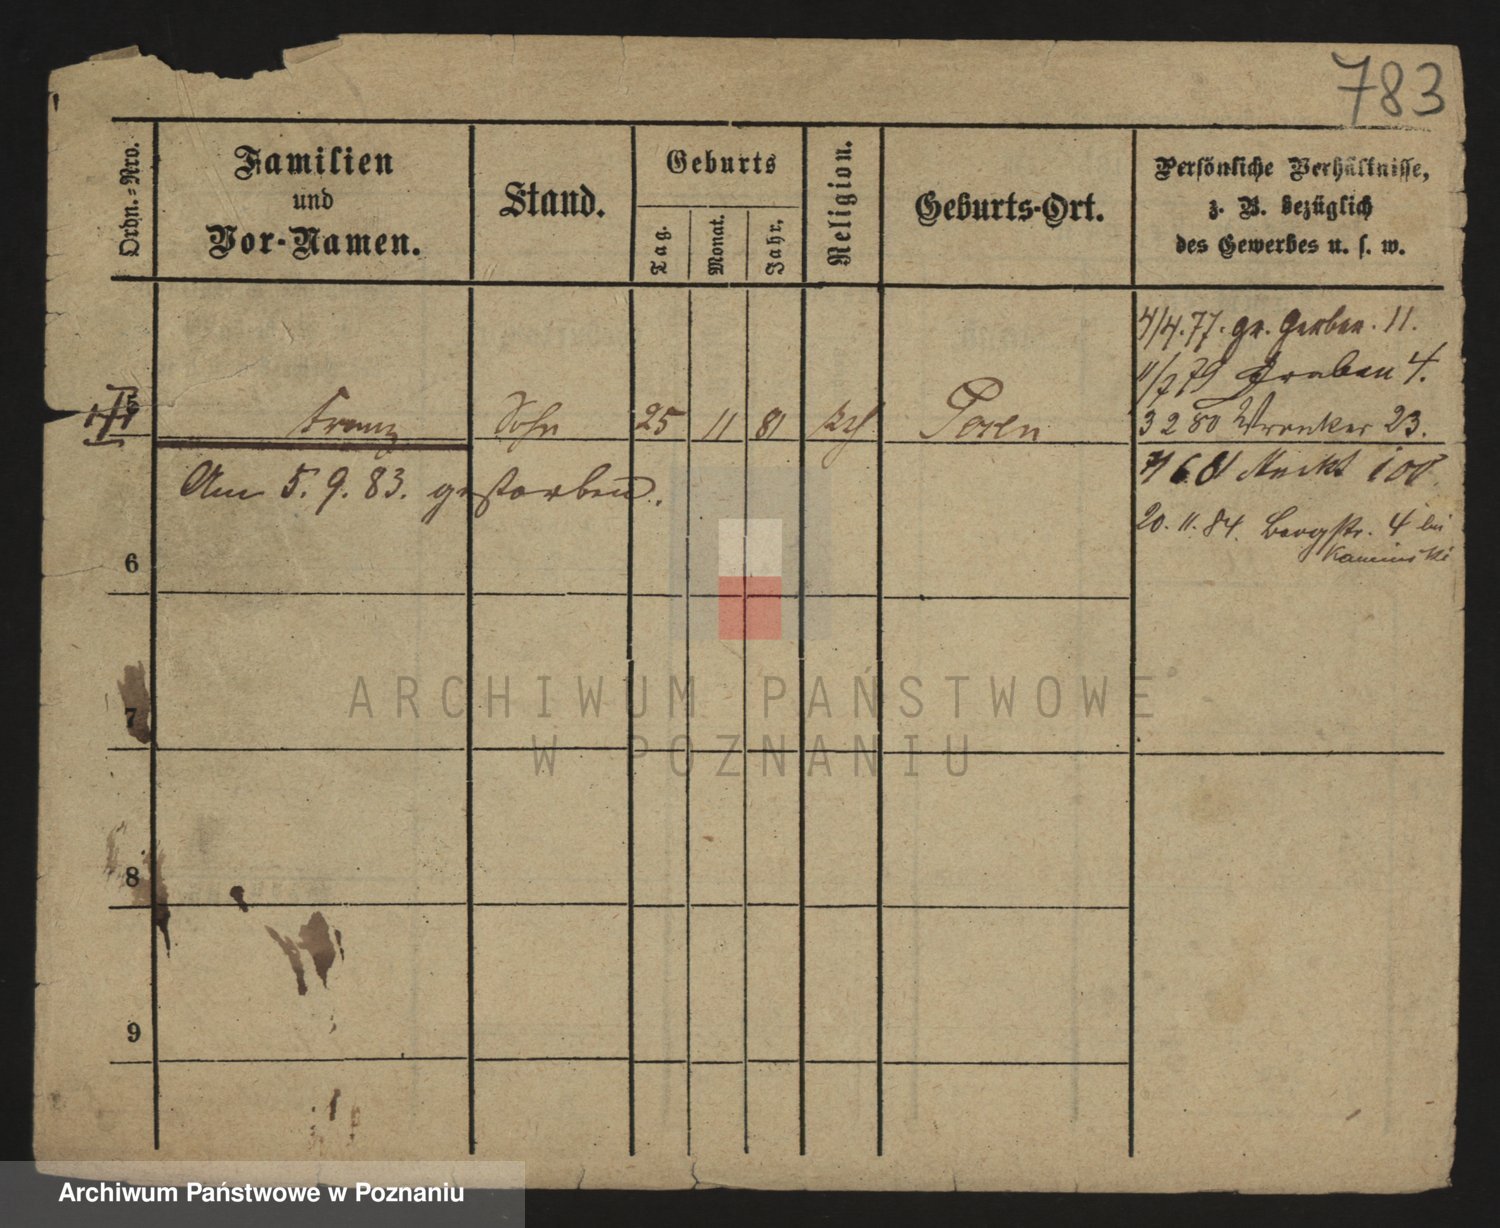 783
Ordn.-Nro.
Familien
und
Vor-Namen.
Stand.
Geburts
Tag.
Monat.
Jahr.
Religion.
Geburts-Ort.
Persönliche Verhältnisse,
z. B. bezüglich
des Gewerbes u. s. w.
4/4.77. gr. Gerber. 11.
79 Graben 4.
5 Franz Sohn 25 11 81 kth Posen
3 2 80 Wronker 23.
Am 5. 9. 83. gestorben.
6 81 Markt 100
20. 11. 84. Bergstr. 4 bei
Kaminski
6
7
8
9
ARCHIWUM PAŃSTWOWE
W POZNANIU
Archiwum Państwowe w Poznaniu